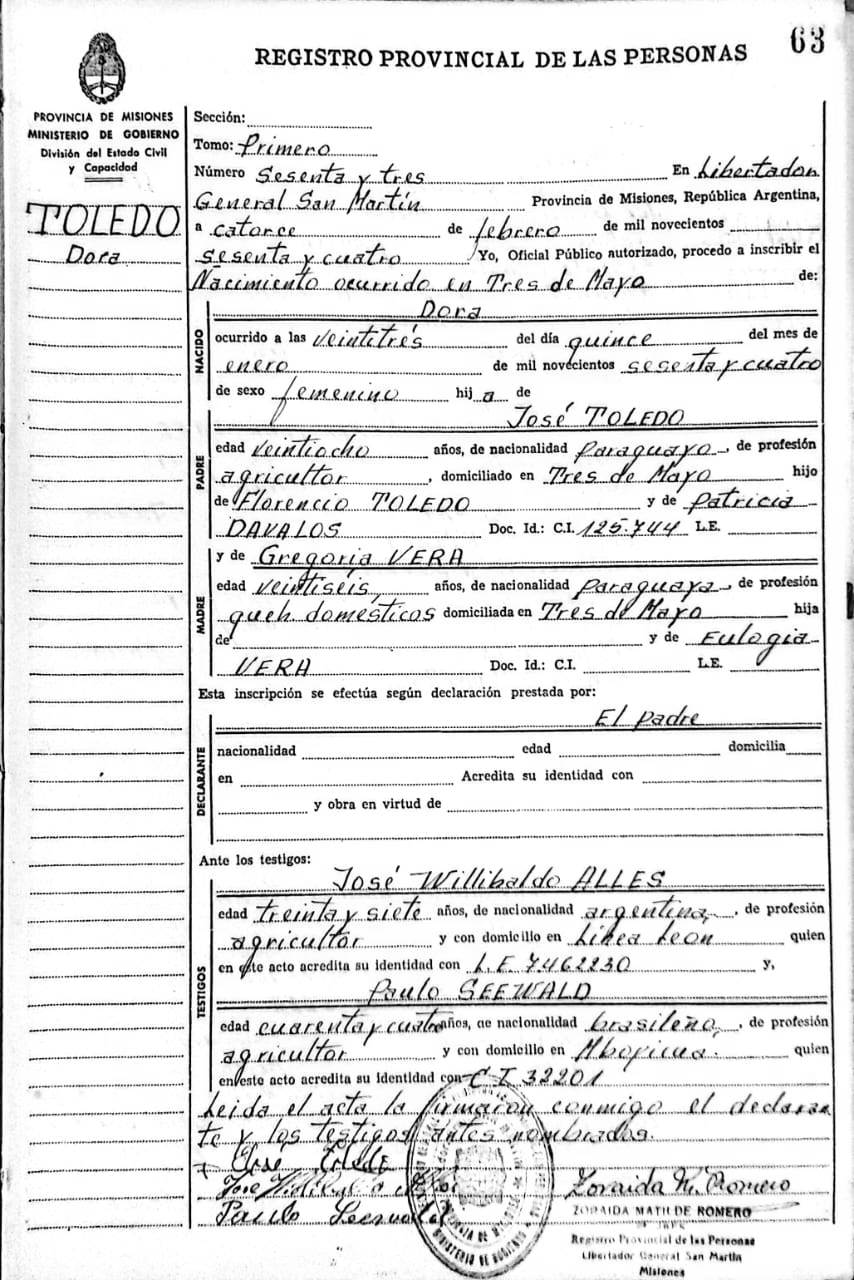 63
REGISTRO PROVINCIAL DE LAS PERSONAS
PROVINCIA DE MISIONES
MINISTERIO DE GOBIERNO
División del Estado Civil
y Capacidad
TOLEDO
Dora
Sección:
Tomo: Primero
Número Sesenta y tres En Libertador
General San Martín Provincia de Misiones, República Argentina,
a catorce de febrero de mil novecientos
sesenta y cuatro Yo, Oficial Público autorizado, procedo a inscribir el
Nacimiento ocurrido en Tres de Mayo de:
NACIDO
Dora
ocurrido a las veintitrés del día quince del mes de
enero de mil novecientos sesenta y cuatro
de sexo femenino hij a de
José TOLEDO
PADRE
edad veintiocho años, de nacionalidad paraguayo, de profesión
agricultor, domiciliado en Tres de Mayo hijo
de Florencio TOLEDO y de Patricia
DAVALOS Doc. Id.: C.I. 125.744 L.E.
y de Gregoria VERA
MADRE
edad veintiséis, años, de nacionalidad paraguaya, de profesión
queh domésticos domiciliada en Tres de Mayo hija
de y de Eulogia
VERA Doc. Id.: C.I. L.E.
Esta inscripción se efectúa según declaración prestada por:
El padre
DECLARANTE
nacionalidad edad domicilia
en Acredita su identidad con
y obra en virtud de
Ante los testigos:
José Willibaldo ALLES
TESTIGOS
edad treinta y siete años, de nacionalidad argentina, de profesión
agricultor y con domicilio en Línea León quien
en este acto acredita su identidad con L.E. 7462230 y,
Paulo SEEWALD
edad cuarenta y cuatro años, de nacionalidad brasileño, de profesión
agricultor y con domicilio en quien
en este acto acredita su identidad con C I 32201
Leida el acta la firmaron conmigo el declaran
te y los testigos antes nombrados.
José Toledo
Zoraida M. Romero
Paulo Seewald
ZORAIDA MATH DE ROMERO
Registro Provincial de las Personas
Libertador General San Martín
Misiones
MINISTERIO DE GOBIERNO